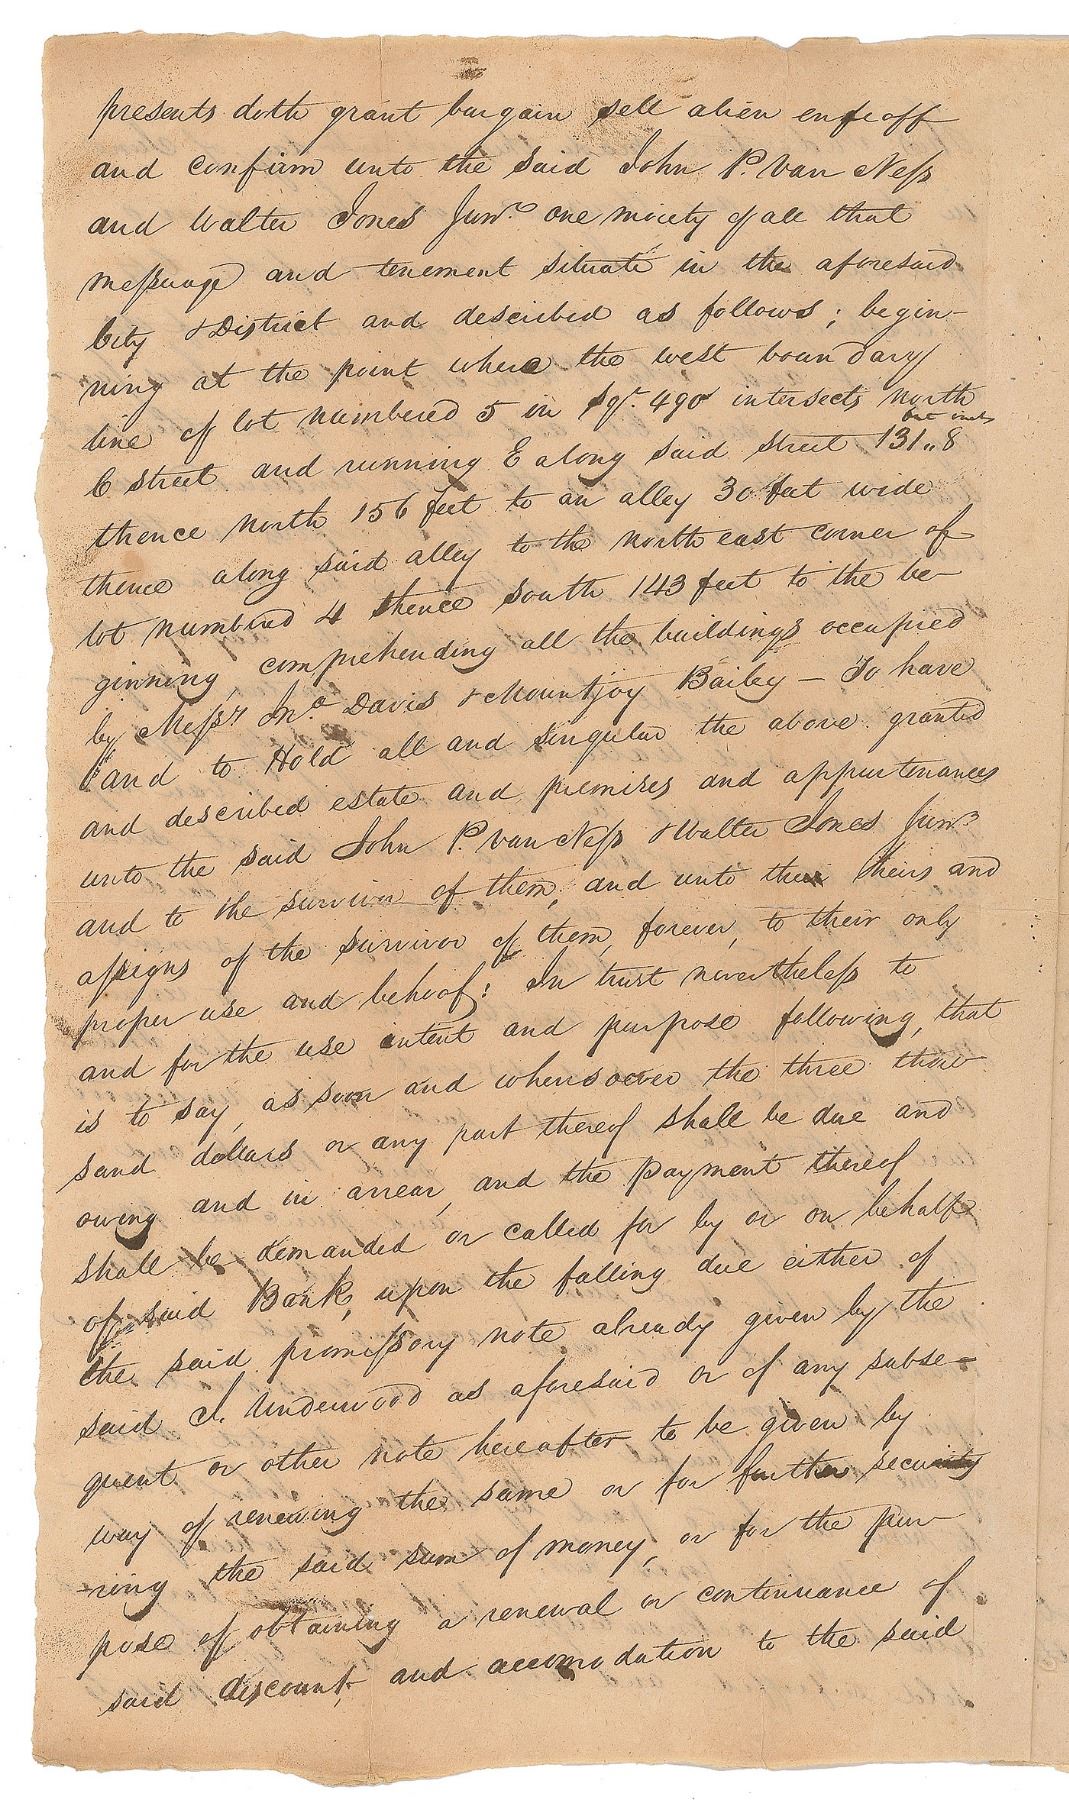 presents doth grant bargain sell alien enfeoff
and confirm unto the said John P. Van Ness
and Walter Jones Junr. one moiety of all that
messuage and tenement situate in the aforesaid
City & District and described as follows; begin-
ning at the point where the west boundary
line of lot numbered 5 in Sqr. 490 intersects north
feet inches
C street and running E along said street 131,, 8
thence north 156 feet to an alley 30 feet wide
thence along said alley to the north east corner of
lot numbered 4 thence south 143 feet to the be-
ginning, comprehending all the buildings occupied
by Messrs Jno. Davis & Mountjoy Bailey — To have
and to Hold all and singular the above granted
and described estate and premises and appurtenances
unto the said John P. Van Ness & Walter Jones Junr.
and to the survivor of them, and unto their heirs and
assigns of the survivor of them, forever, to their only
proper use and behoof: In trust nevertheless to
and for the use intent and purpose following, that
is to say, as soon and whensoever the three thou-
sand dollars or any part thereof shall be due and
owing and in arrear, and the payment thereof
shall be demanded or called for by or on behalf
of said Bank, upon the falling due either of
the said promissory note already given by the
said J. Underwood as aforesaid or of any subse-
quent or other note hereafter to be given by
way of renewing the same or for further secu
-ring the said sum of money, or for the pur-
pose of obtaining a renewal or continuance of
said discount, and accomodation to the said